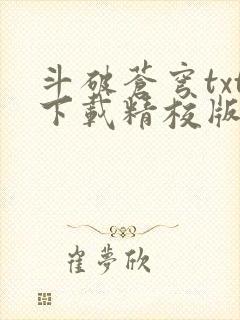 斗破蒼穹txt
下載精校版
崔夢欣